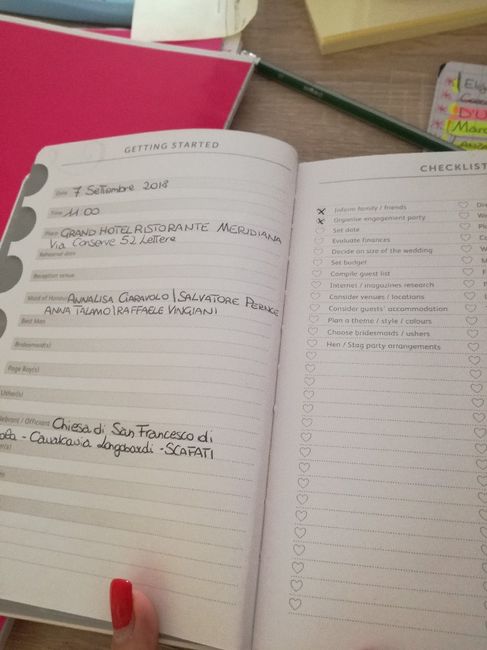 GETTING STARTED
Date 7 Settembre 2018
Time 11:00
Place GRAND HOTEL RISTORANTE MERIDIANA
Via Conserve 52 Lettere
Rehearsal date
Reception venue
Maid of Honour ANNALISA CIARAVOLO | SALVATORE PERNICE
ANNA TALAMO | RAFFAELE VINGIANI
Best Man
Bridesmaid(s)
Page Boy(s)
Usher(s)
Celebrant / Officiant Chiesa di San Francesco di
- Cavalcavia Longobardi - SCAFATI
CHECKLIST
Inform family / friends
Organise engagement party
Set date
Evaluate finances
Decide on size of the wedding
Set budget
Compile guest list
Internet / magazines research
Consider venues / locations
Consider guests' accommodation
Plan a theme / style / colours
Choose bridesmaids / ushers
Hen / Stag party arrangements